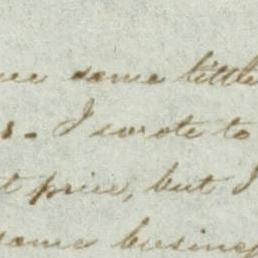 some little
s. I wrote to
t price, but I
some busines